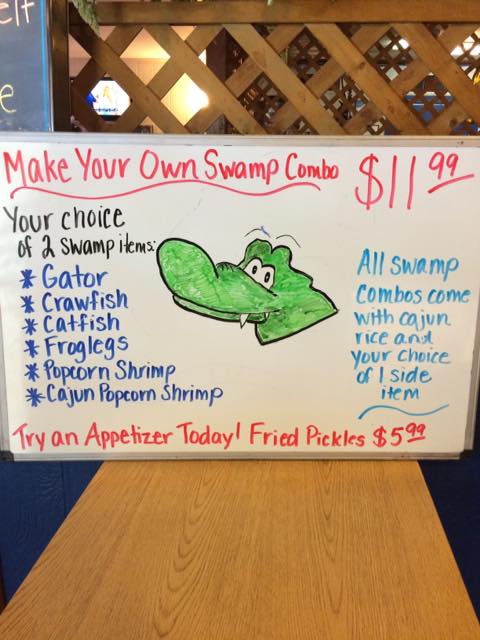 elf
e
Make Your Own Swamp Combo $11.99
Your choice
of 2 Swamp items:
* Gator
* Crawfish
* Catfish
* Froglegs
* Popcorn Shrimp
* Cajun Popcorn Shrimp
All swamp
combos come
with cajun
rice and
your choice
of 1 side
item
Try an Appetizer Today! Fried Pickles $5.99